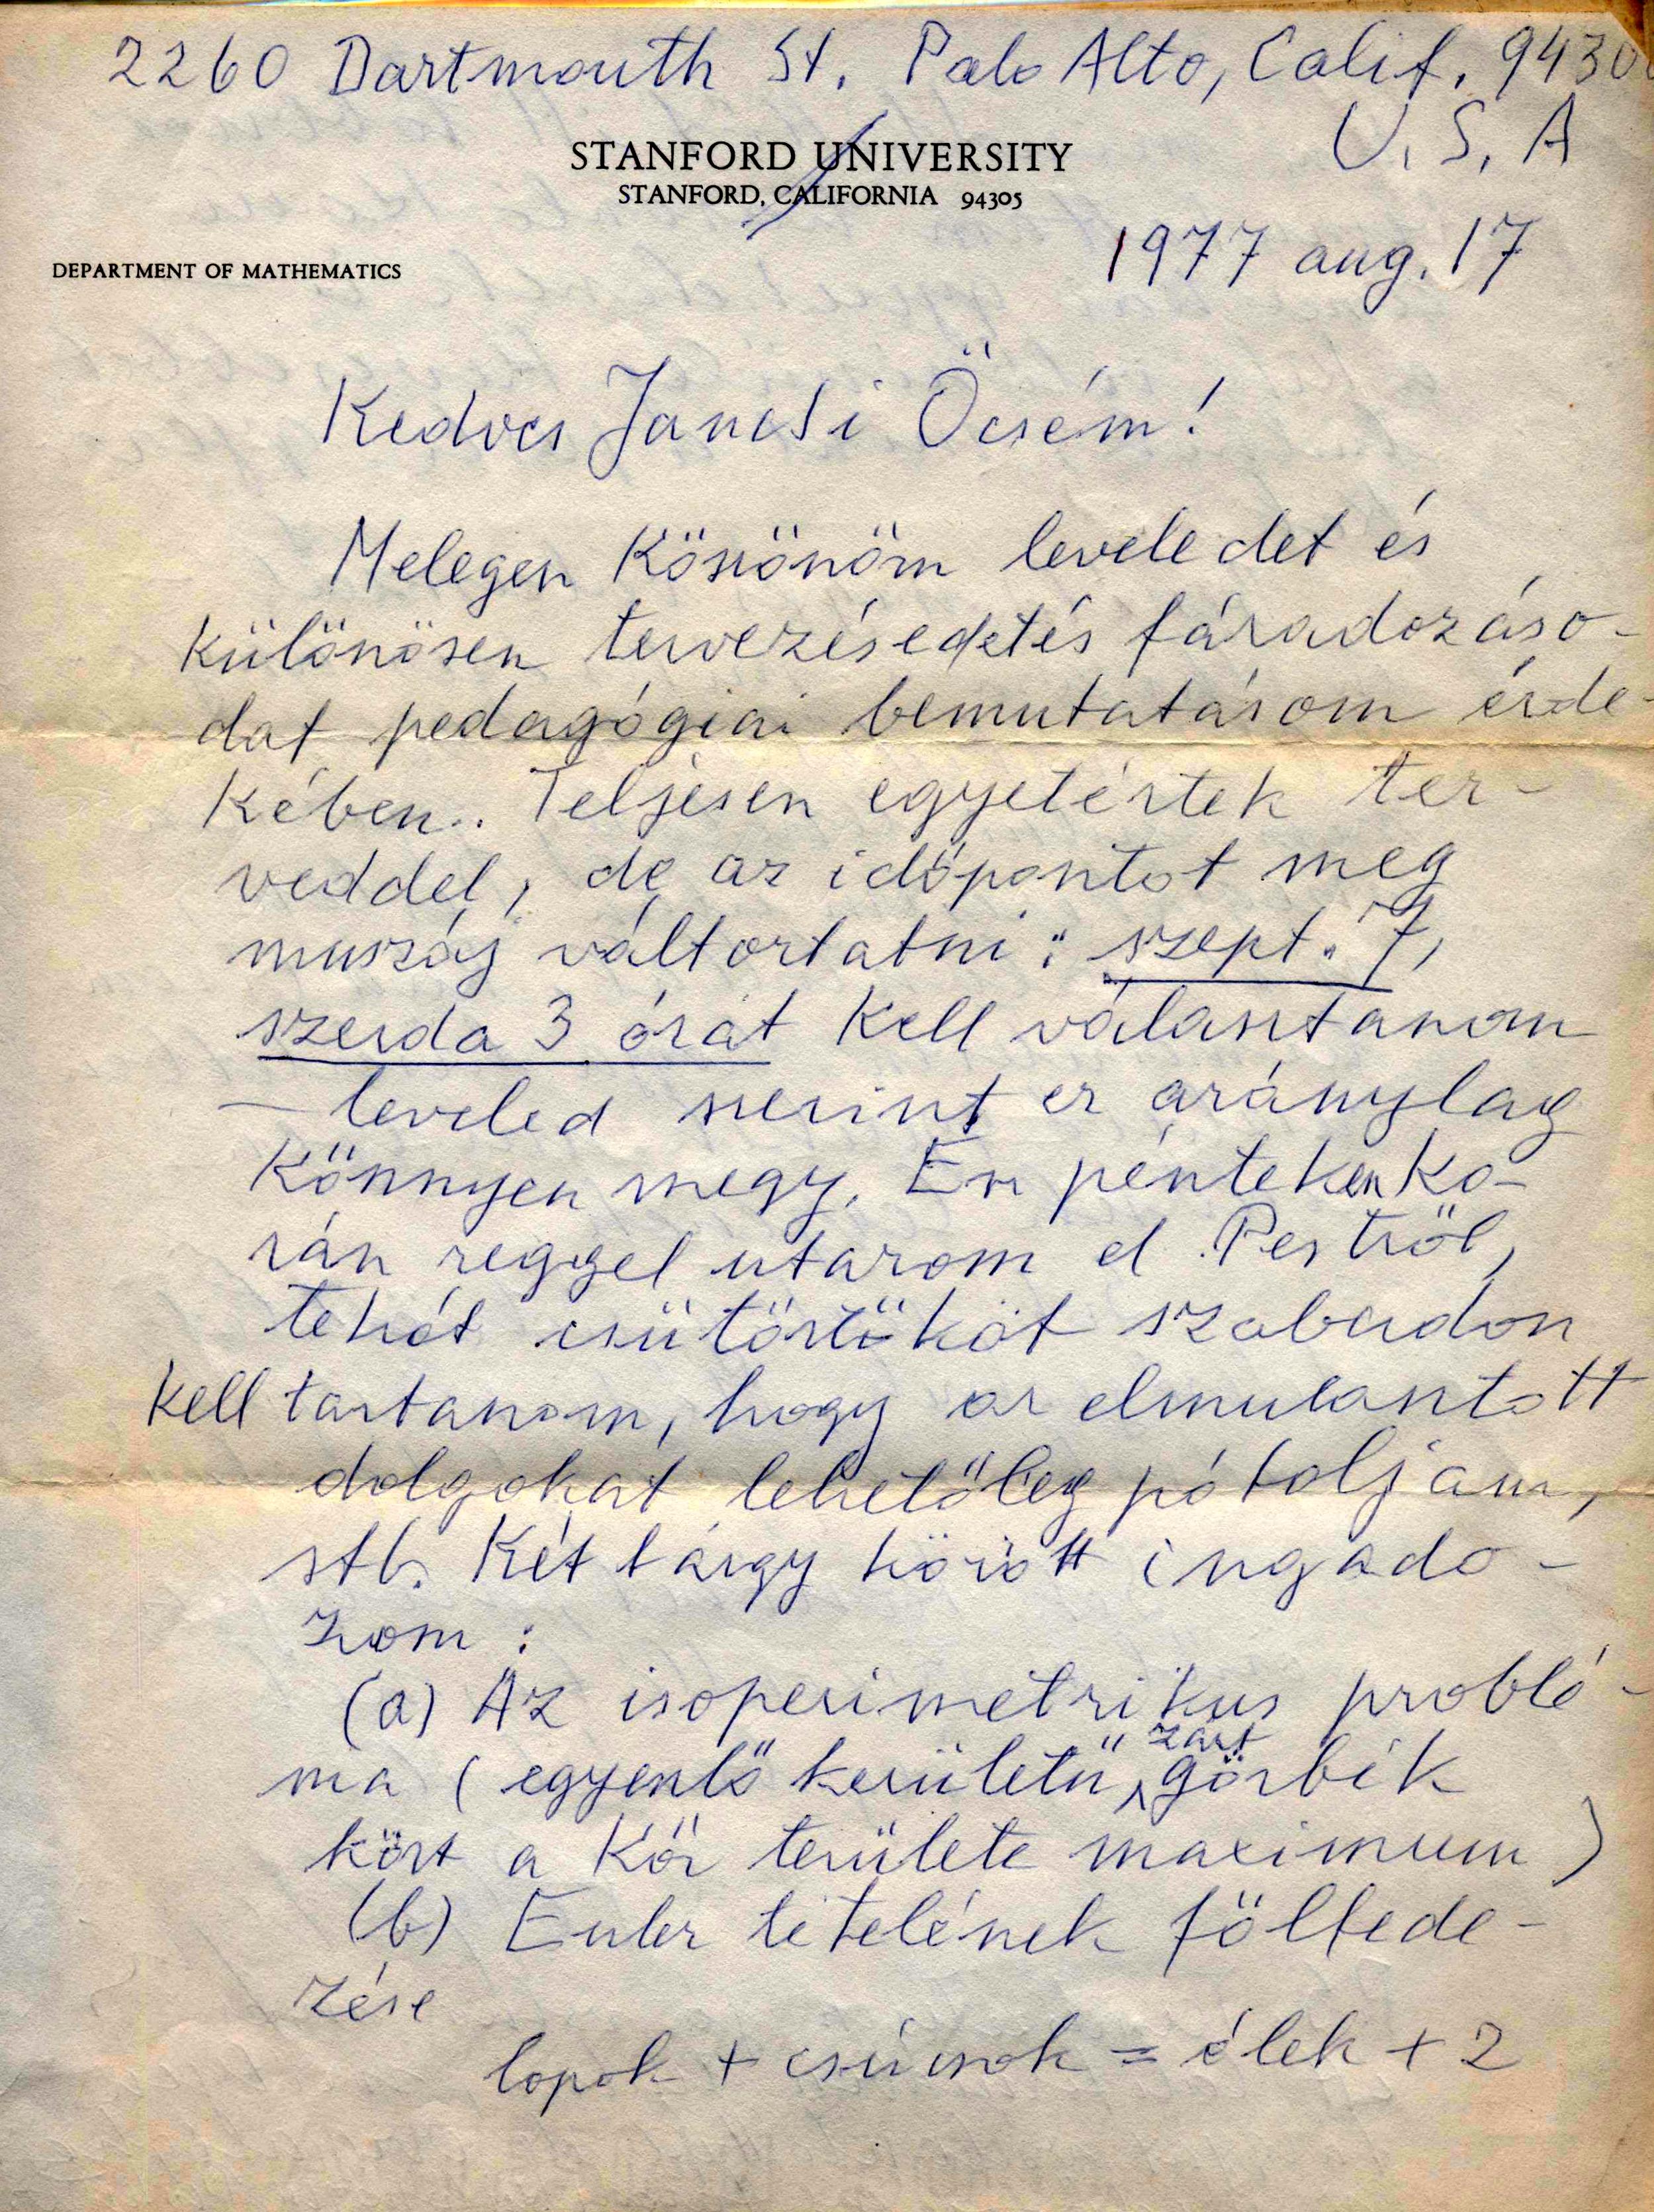 2260 Dartmouth St. Palo Alto, Calif. 9430
U. S. A
STANFORD UNIVERSITY
STANFORD, CALIFORNIA 94305
1977 aug. 17
DEPARTMENT OF MATHEMATICS
Kedves Jancsi Öcsém!
Melegen köszönöm leveledet és
különösen tervezésedet és fáradozáso-
dat pedagógiai bemutatásom érde-
kében. Teljesen egyetértek ter-
veddel, de az időpontot meg
muszáj változtatni: szept. 7,
szerda 3 órát kell választanom
— leveled szerint ez aránylag
könnyen megy. Én pénteken ko-
rán reggel utazom el Pestről,
tehát csütörtököt szabadon
kell tartanom, hogy az elmulasztott
dolgokat lehetőleg pótoljam,
stb. Két tárgy között ingado-
zom:
(a) Az isoperimetrikus problé-
ma (egyenlő kerületű zárt görbék
közt a kör területe maximum)
(b) Euler tételének fölfede-
zése
lapok + csúcsok = élek + 2